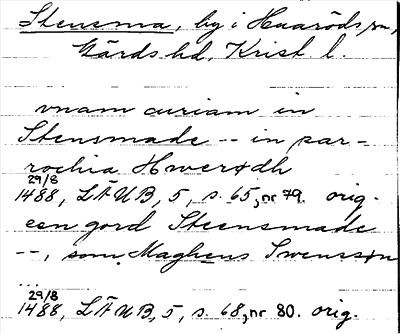 Stensma, by i Haaröds sn,
Gärds hd, Krist. l.
vnam curiam in
Stensmade -- in par-
rochia Hwerødh
29/8
1488, LÄUB, 5, s. 65, nr 79. orig.
een gord Steensmade
--, som Maghens Swenssøn
...
29/8
1488, LÄUB, 5, s. 68, nr 80. orig.